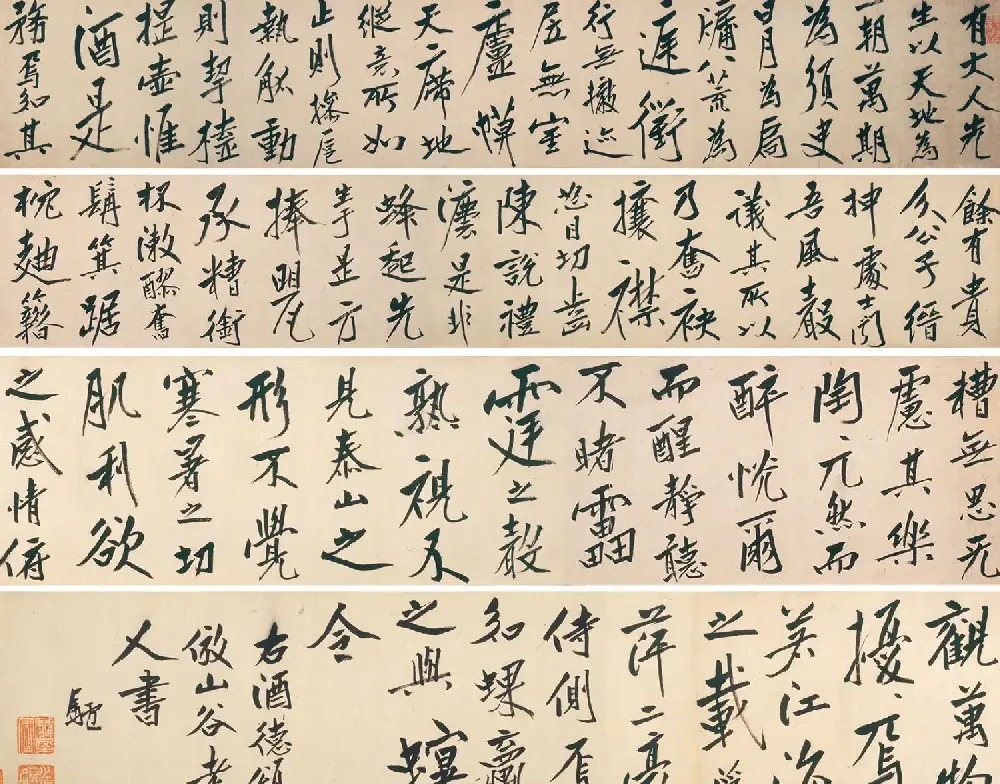 有大人先
生以天地為
一朝萬期
為須臾
日月為扃
牖八荒為
庭衢
行無轍迹
居無室
廬幕
天席地
縱意所如
止則操卮
執觚動
則挈榼
提壺惟
酒是
務焉知其
餘有貴
介公子搢
紳處士聞
吾風聲
議其所以
乃奮袂
攘襟
怒目切齒
陳說禮
灋是非
蜂起先
生於是方
捧甖
承糟銜
杯漱醪奮
髯箕踞
枕麴籍
糟無思无
慮其樂
陶兀然而
醉恍爾
而醒靜聽
不睹雷
霆之聲
熟視不
見泰山之
形不覺
寒暑之切
肌利欲
之感情俯
觀萬物
擾擾焉
江
之載
萍二豪
侍側焉
知蜾蠃
之與螟
令
右酒德頌
倣山谷老
人書